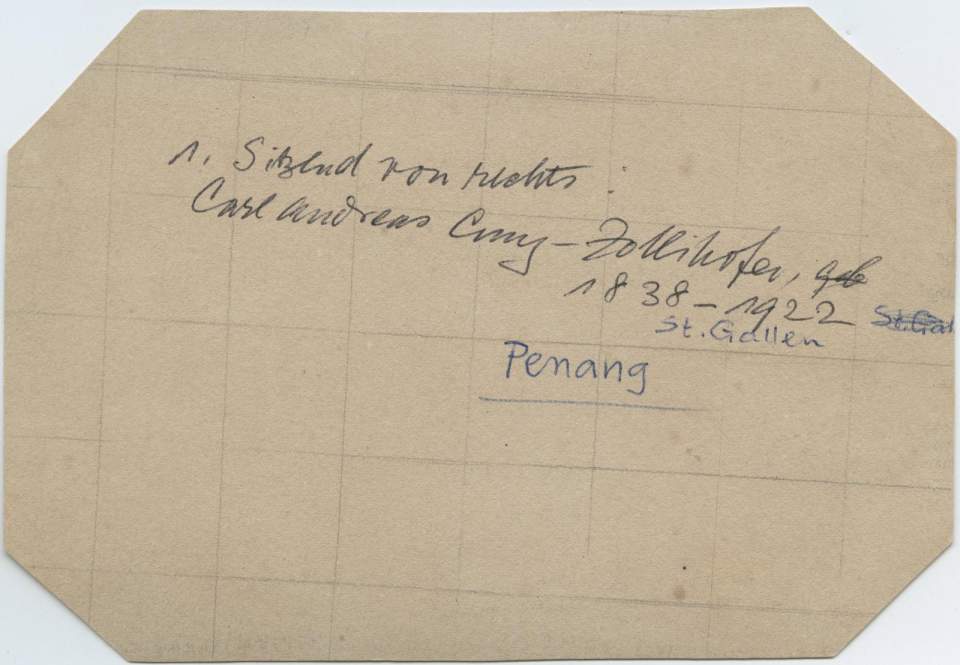 1. Sitzend von rechts :
Carl Andreas Cuny - Zollikofer, geb
1838 - 1922 St. Gal
St. Gallen
Penang